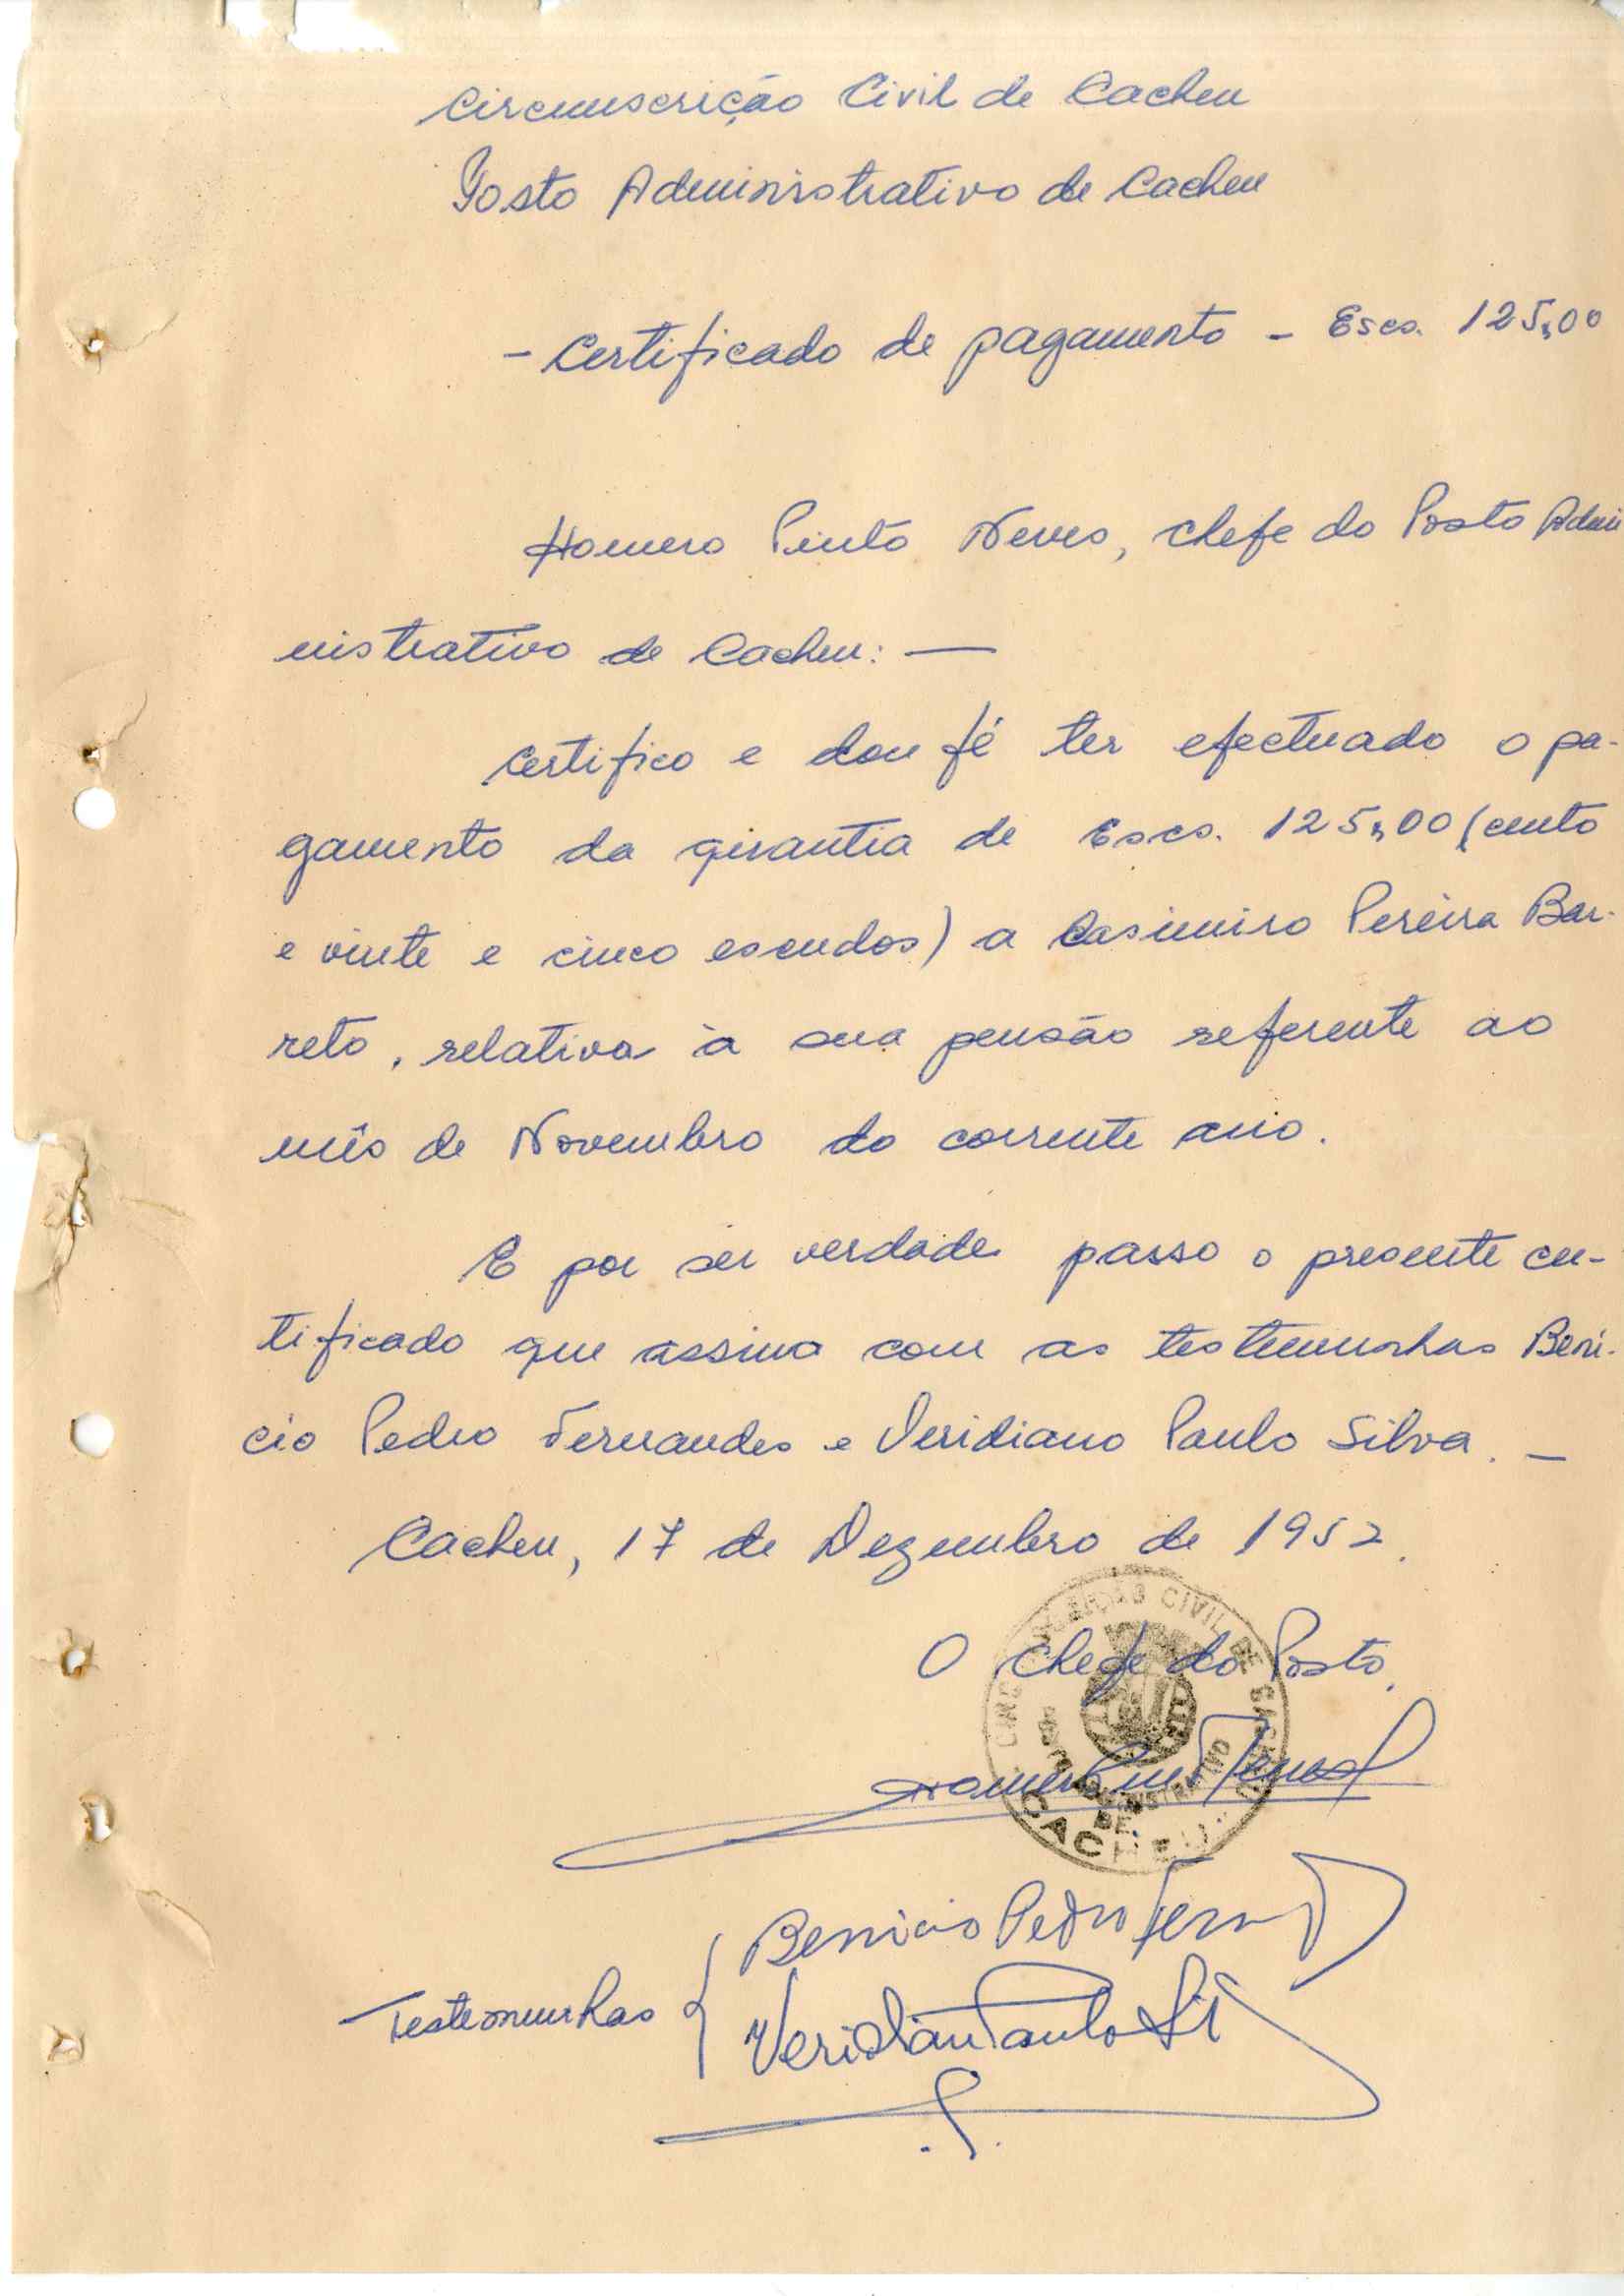 Circunscrição Civil de Cacheu
Posto Administrativo de Cacheu
- Certificado de pagamento - Escs. 125,00
Homero Pinto Neves, chefe do Posto Admi
nistrativo de Cacheu: —
Certifico e dou fé ter efectuado o pa-
gamento da qirantia de Escs. 125,00 (cento
e vinte e cinco escudos) a Casimiro Pereira Bar-
reto, relativa à sua pensão referente ao
mês de Novembro do corrente ano.
E por ser verdade passo o presente cer-
tificado que assino com as testemunhas Bení-
cio Pedro Fernandes e Veridiano Paulo Silva. —
Cacheu, 17 de Dezembro de 1952.
O Chefe do Posto,
CIRCUNSCRIÇÃO CIVIL DE CACHEU
POSTO ADMINISTRATIVO
DE
CACHEU
Homero Pinto Neves
Benicio Pedro Fern
Testemunhas {
Veridiano Paulo Sil